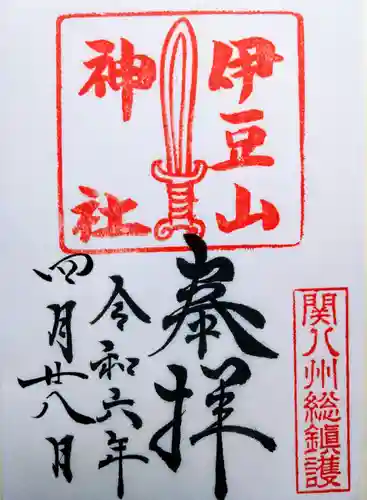 伊豆山
神社
奉拝
令和六年
四月廿八日
関八州総鎮護